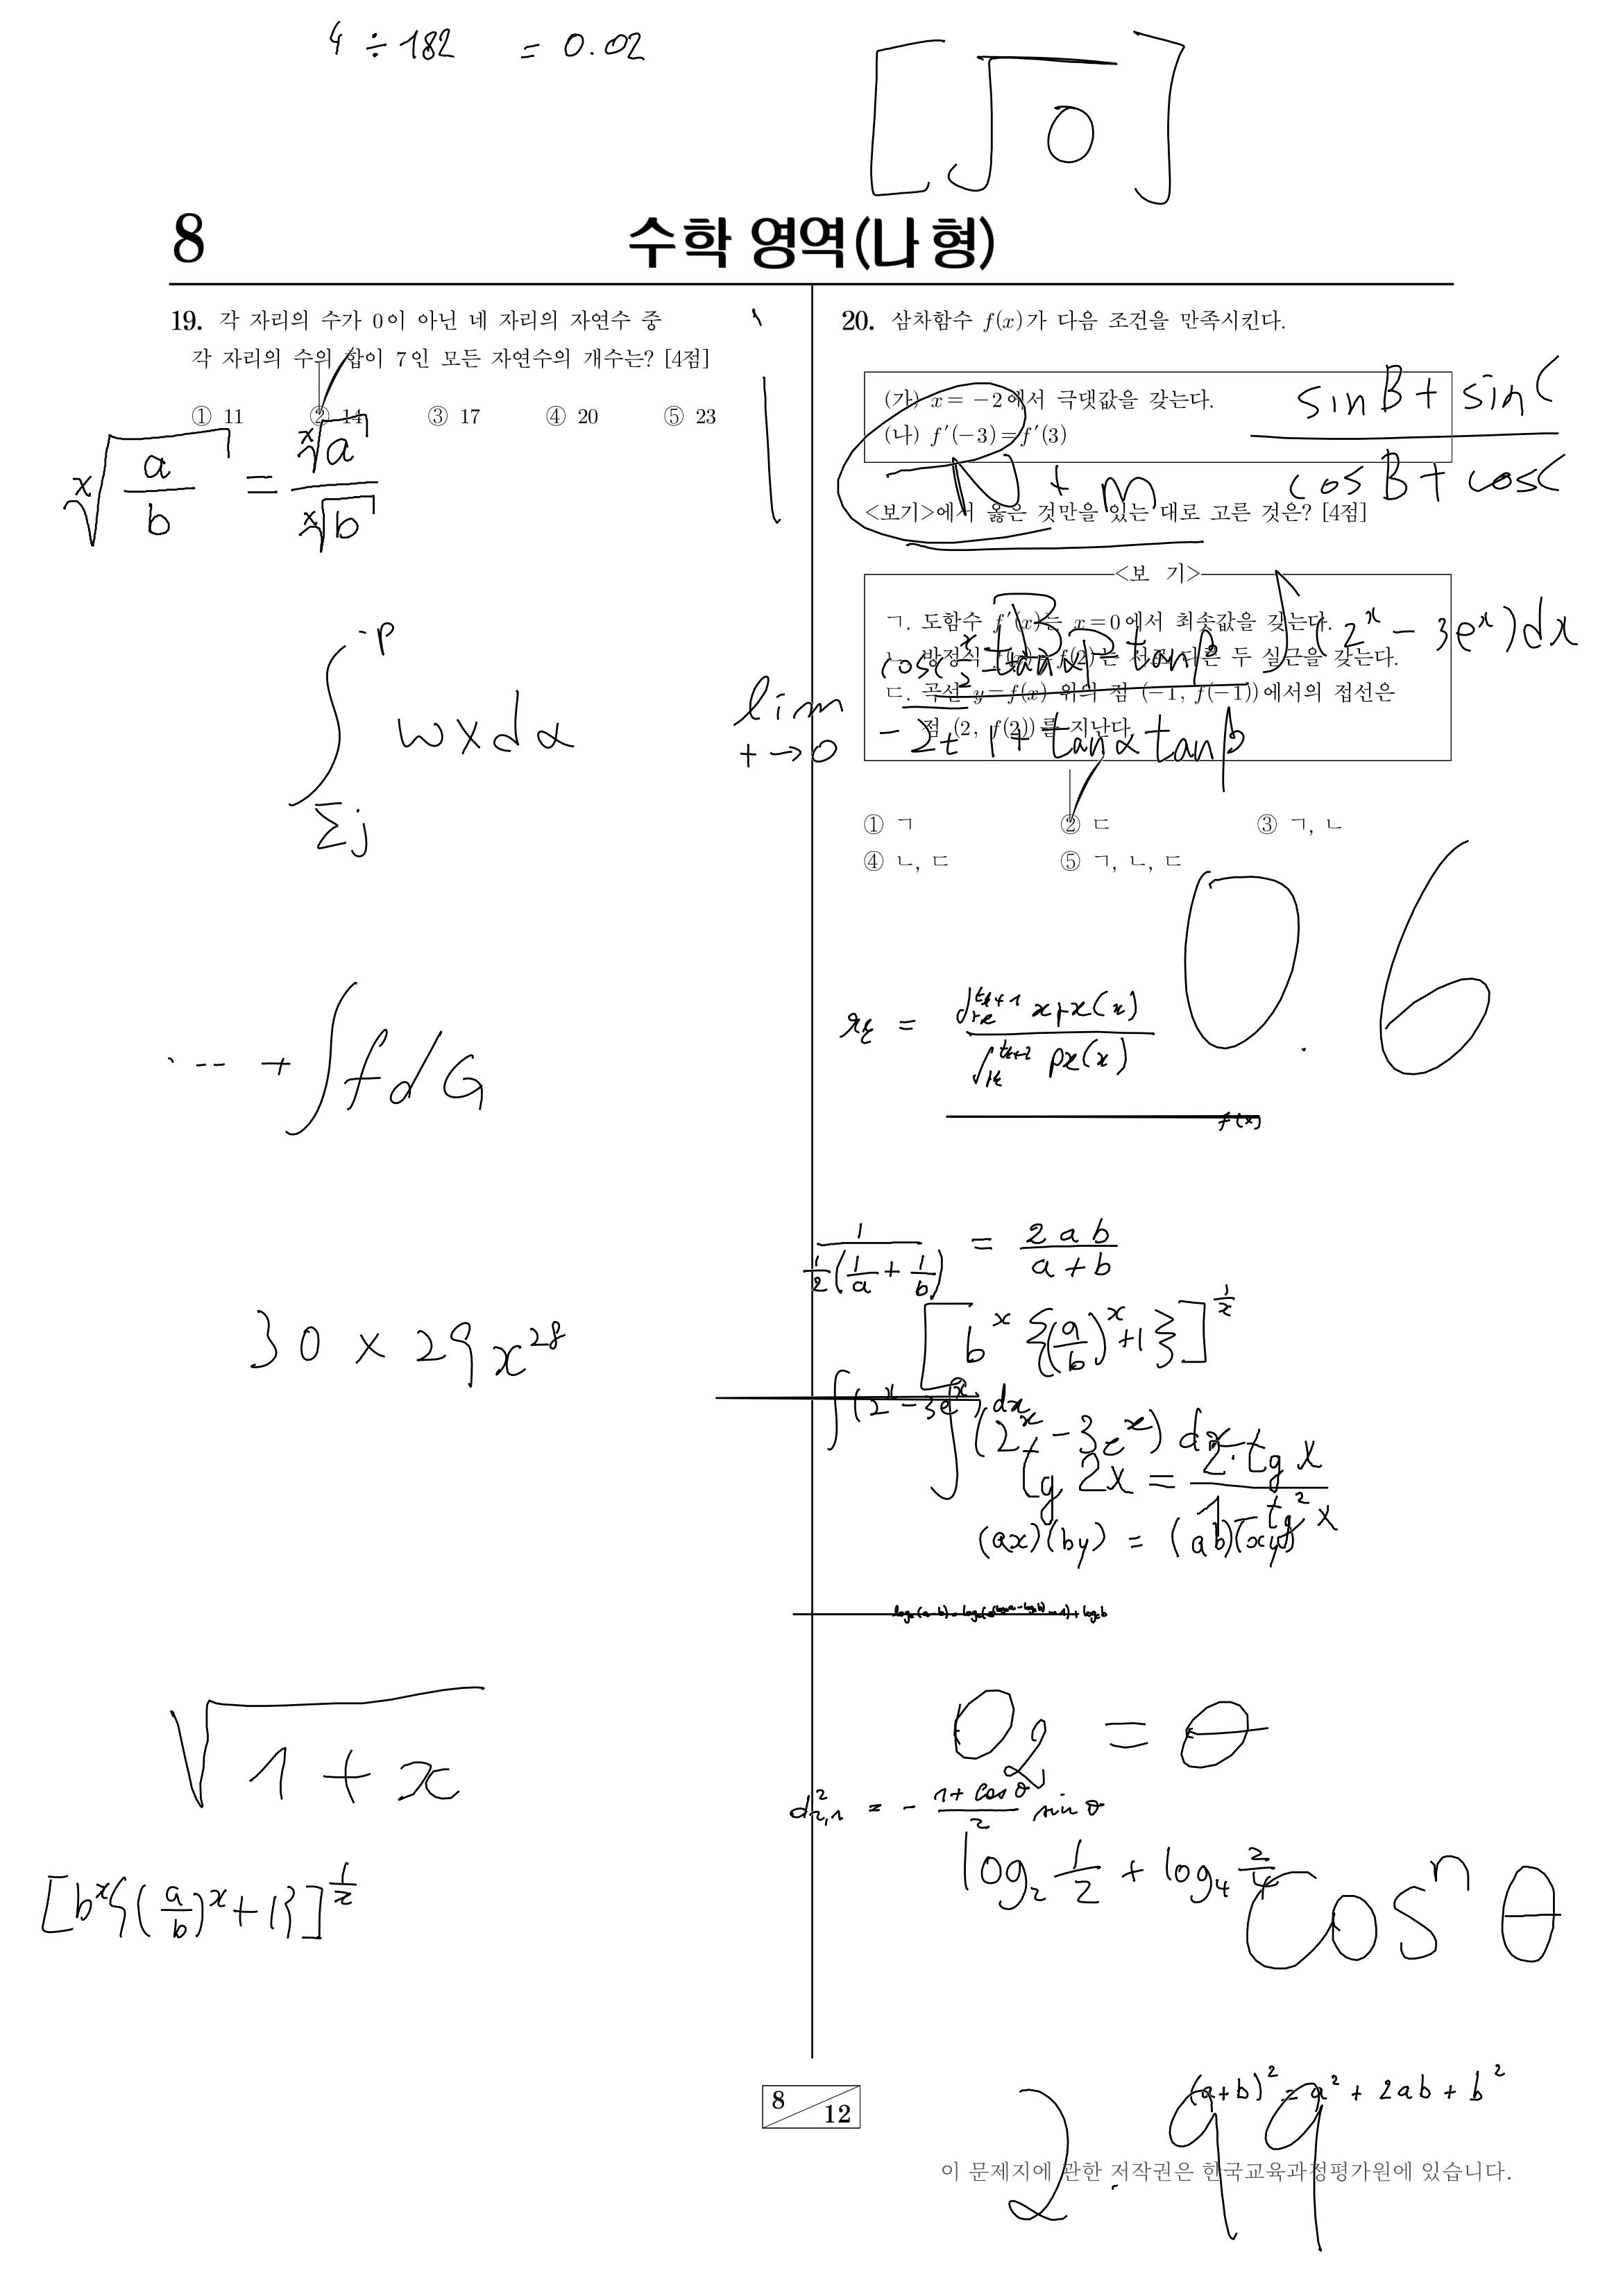 4 ÷ 182 = 0.02
[√0]
8
수학 영역(나형)
19. 각 자리의 수가 0이 아닌 네 자리의 자연수 중
각 자리의 수의 합이 7인 모든 자연수의 개수는? [4점]
① 11 ② 14 ③ 17 ④ 20 ⑤ 23
ˣ√(a/b) = ˣ√a / ˣ√b
∫ wxdα
Σj
··· + ∫fdG
30 × 29x²⁸
√(1+x)
[bˣ{(a/b)ˣ+1}]
20. 삼차함수 f(x)가 다음 조건을 만족시킨다.
(가) x = −2에서 극댓값을 갖는다.
(나) f′(−3) = f′(3)
(sinB + sinC) / (cosB + cosC)
N + m
<보기>에서 옳은 것만을 있는 대로 고른 것은? [4점]
<보 기>
ㄱ. 도함수 f′(x)는 x=0에서 최솟값을 갖는다.
ㄴ. 방정식 f(x)=f(2)는 서로 다른 두 실근을 갖는다.
ㄷ. 곡선 y=f(x) 위의 점 (−1, f(−1))에서의 접선은
점 (2, f(2))를 지난다.
∫(2ˣ − 3eˣ)dx
lim
1 + tanα tanβ
① ㄱ ② ㄷ ③ ㄱ, ㄴ
④ ㄴ, ㄷ ⑤ ㄱ, ㄴ, ㄷ
0.6
f(x)
1 / (1/2(1/a + 1/b)) = 2ab / (a+b)
[bˣ{(a/b)ˣ+1}]
∫(2ˣ − 3eˣ) dx
∫(2ˣ − 3eˣ) dx
tg 2x = 2·tg x / (1 − tg² x)
(ax)(by) = (ab)(xy)
= θ
d²₂,₁ = − (1+cosθ)/2 sinθ
log₂ 1/2 + log₄ 2/4
cosⁿ θ
8
12
(a+b)² = a² + 2ab + b²
2.99
이 문제지에 관한 저작권은 한국교육과정평가원에 있습니다.